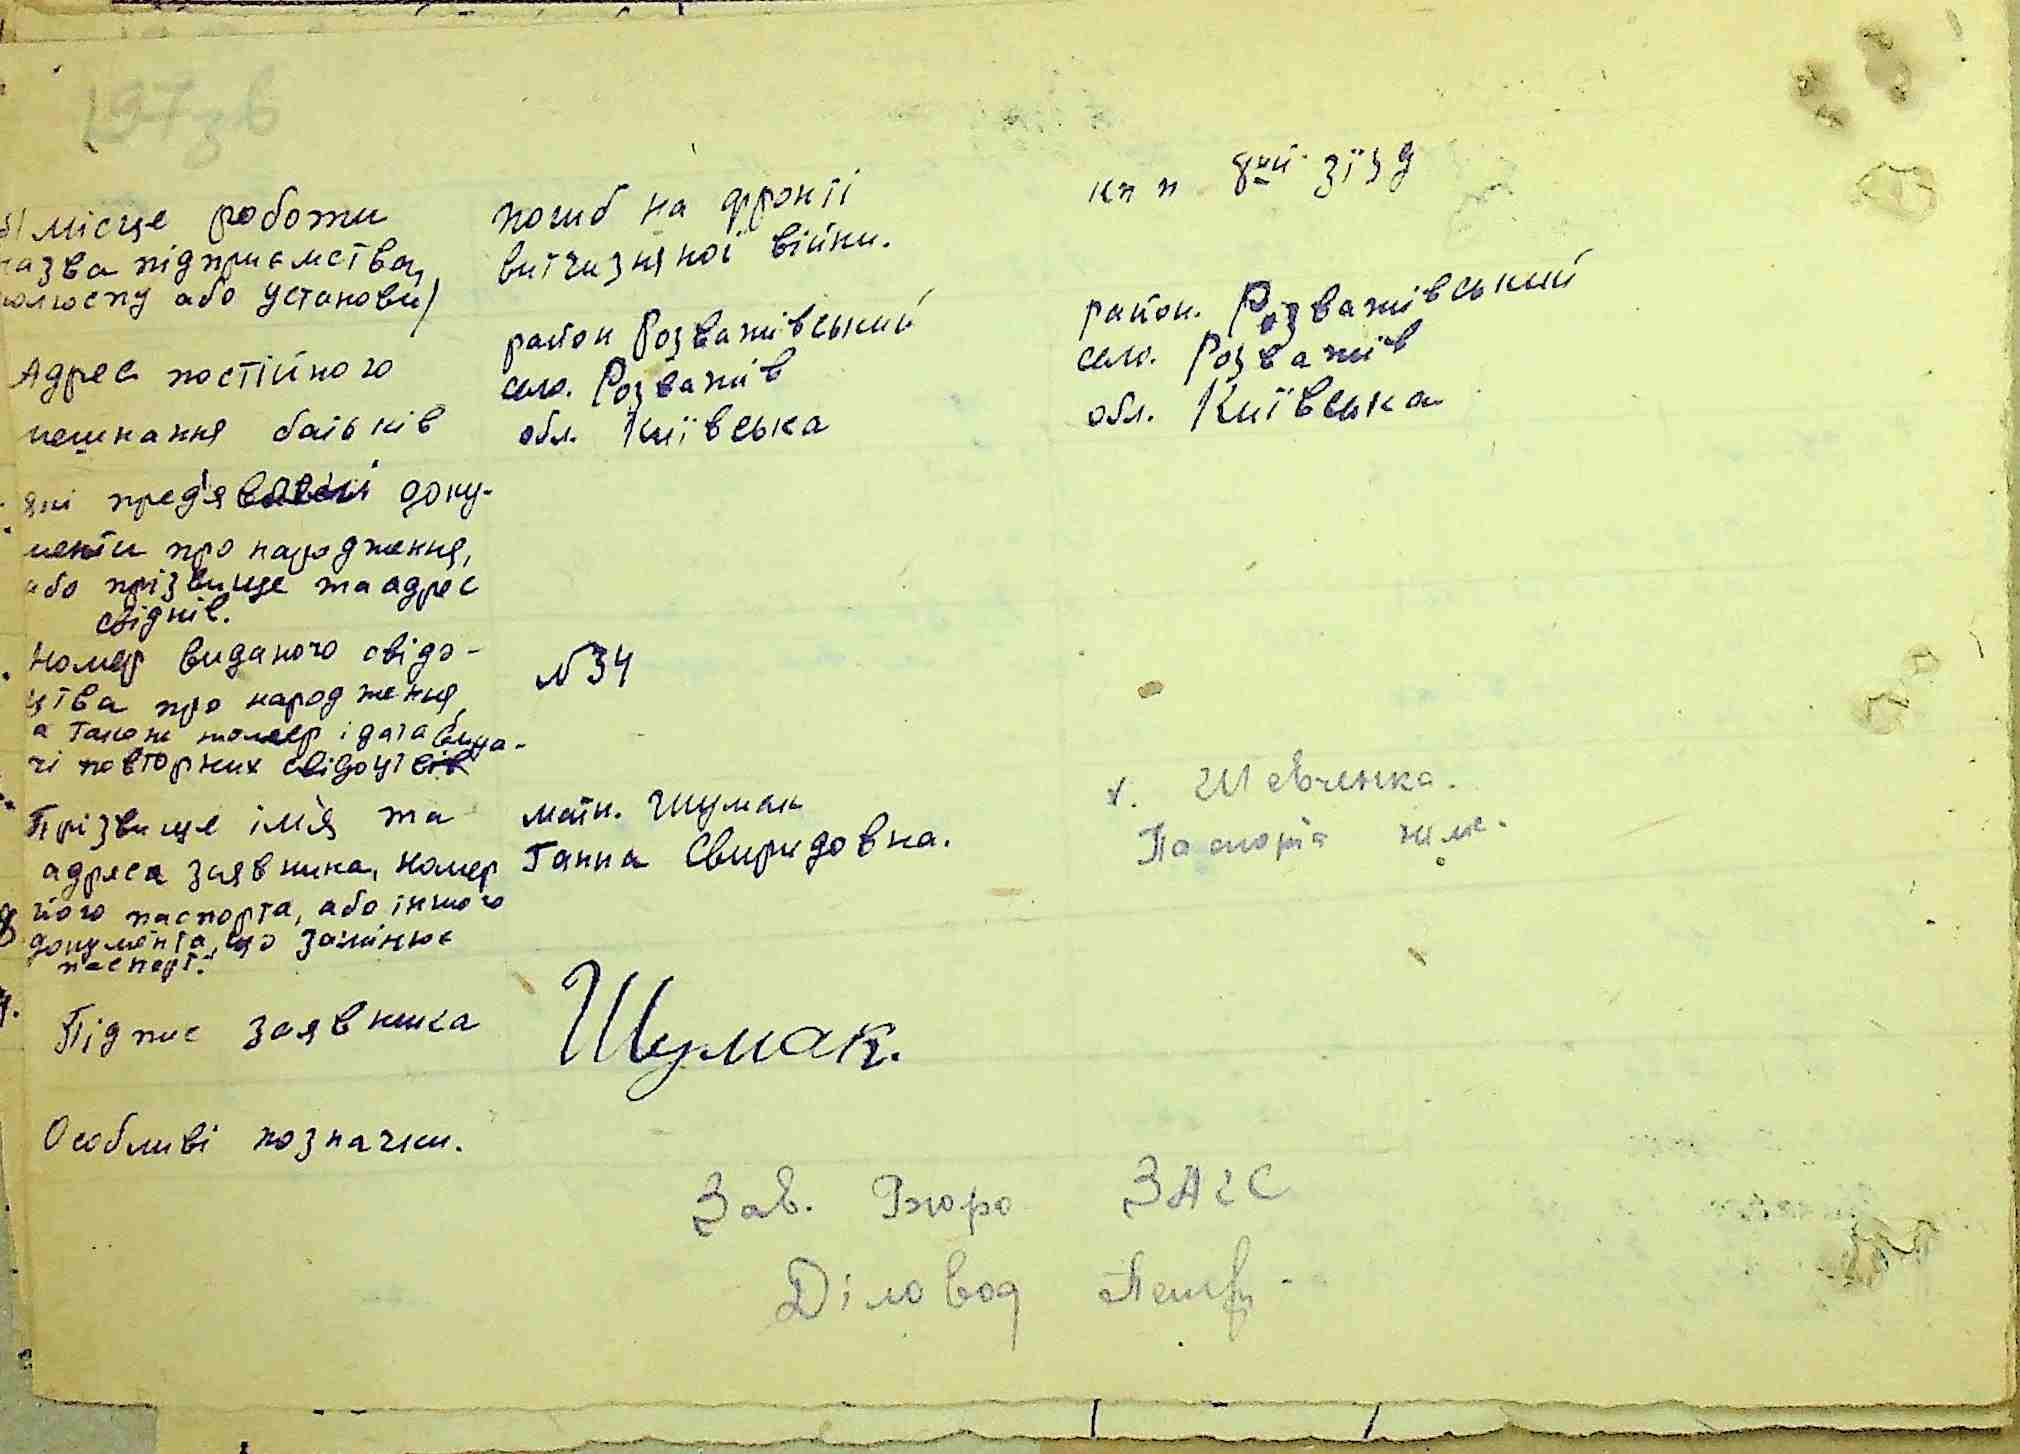 197зв
б) місце роботи
назва підприємства,
колгоспу або установи)
погиб на фронті
витчизняної війни.
кпп 8ий зїзд
Адрес постійного
мешкання батьків
район Розважівський
село. Розважів
обл. Київська
район. Розважівський
село. Розважів
обл. Київська
які предʼявлені доку-
менти про народження,
або прізвище та адрес
свідків.
Номер виданого свідо-
цтва про народження,
а також номер і дата вида-
чі повторних свідоцтв
№34
Прізвище імʼя та
адреса заявника, номер
його паспорта, або іншого
документа, що замінює
паспорт.
мати. Шумак
Ганна Свиридовна.
х. Шевченка.
Паспорта
Підпис заявника
Шумак.
Особливі позначки.
Зав. Бюро ЗАГС
Діловод